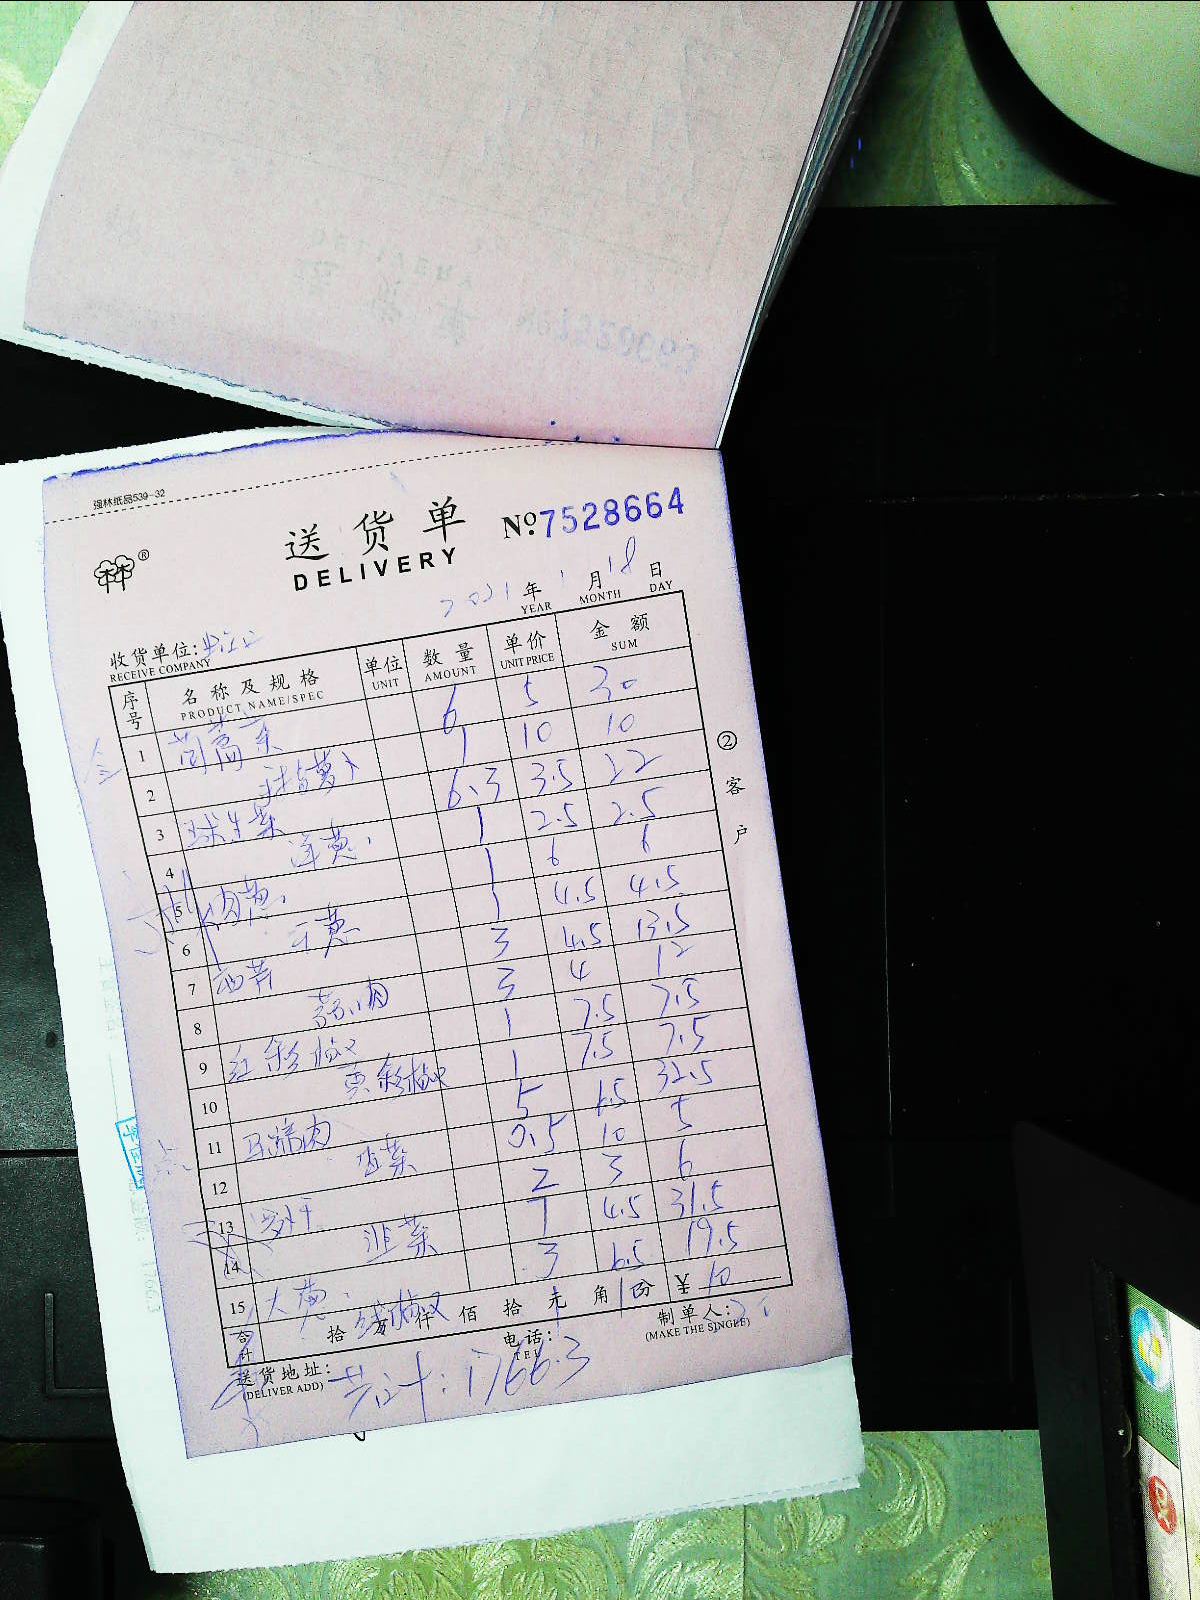 强林纸品539-32
送货单 №7528664
DELIVERY
2021年1月18日
YEAR MONTH DAY
收货单位:
RECEIVE COMPANY
序号 名称及规格 单位 数量 单价 金额
PRODUCT NAME/SPEC UNIT AMOUNT UNIT PRICE SUM
1 茼蒿菜 6 5 30
2 手指萝卜 1 10 10
3 球生菜 6.3 3.5 22
4 洋葱 1 2.5 2.5
5 肉葱 1 6 6
6 干葱 1 4.5 4.5
7 西芹 3 4.5 13.5
8 3 4 12
9 红彩椒 1 7.5 7.5
10 黄彩椒 1 7.5 7.5
11 马蹄肉 5 6.5 32.5
12 香菜 0.5 10 5
13 2 3 6
14 韭菜 7 4.5 31.5
15 大葱 3 6.5 19.5
合计 拾 万 仟 佰 拾 元 角 份 ¥ 10
线椒
送货地址: 电话: 制单人:
(DELIVER ADD) TEL (MAKE THE SINGLE)
共计:1766.3
②客户